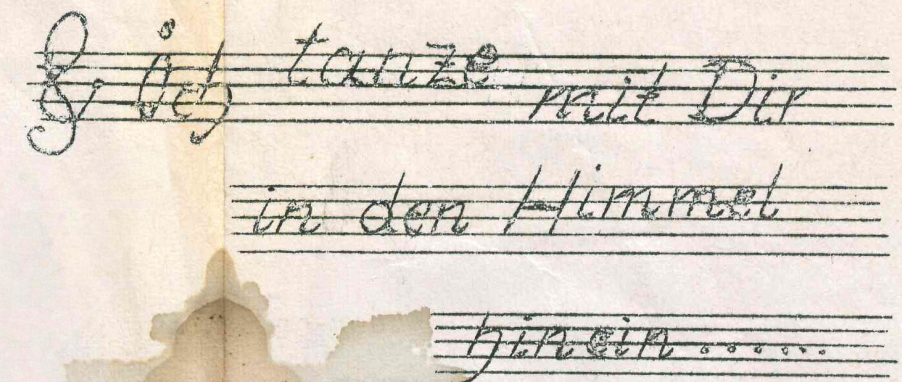 Ich tanze mit Dir
in den Himmel
hinein ......